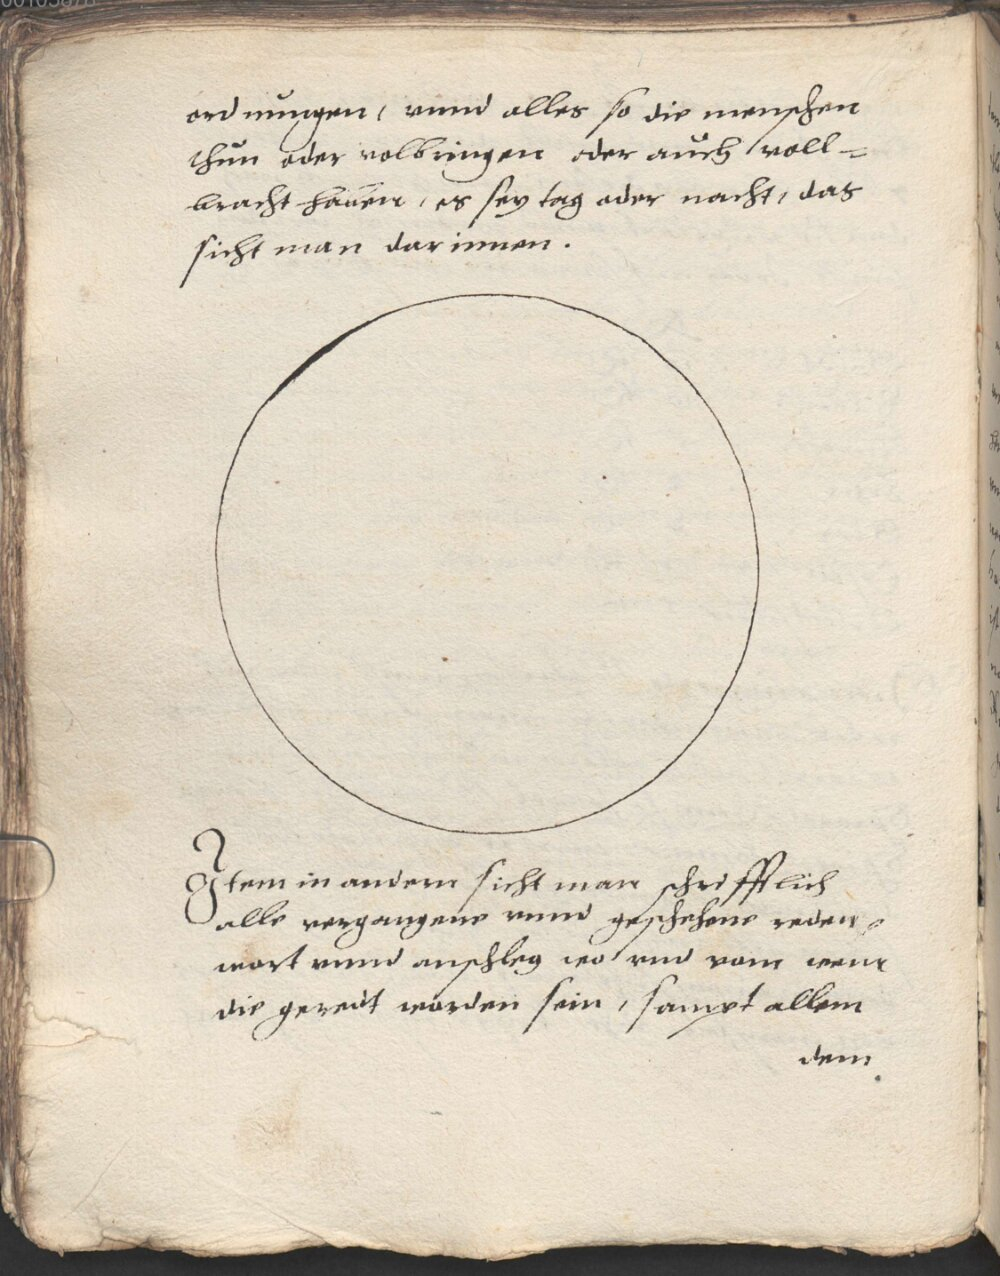 ordnungen, unnd alles so die menschen
thun oder volbringen oder auch voll=
bracht haben, es sey tag oder nacht, das
sicht man darinnen.
Item in andern sicht man schrifftlich
alle vergangene unnd geschehene reden,
wort unnd anschleg wo und vonn wem
die geredt worden sein, sampt allem
dem